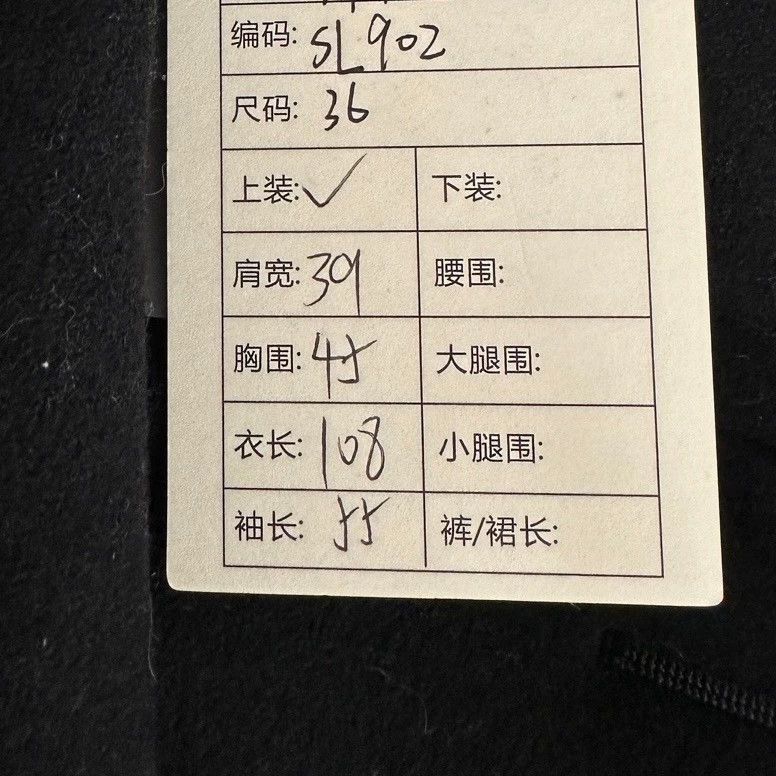 编码: SL902
尺码: 36
上装: ✓ 下装:
肩宽: 39 腰围:
胸围: 45 大腿围:
衣长: 108 小腿围:
袖长: 55 裤/裙长: